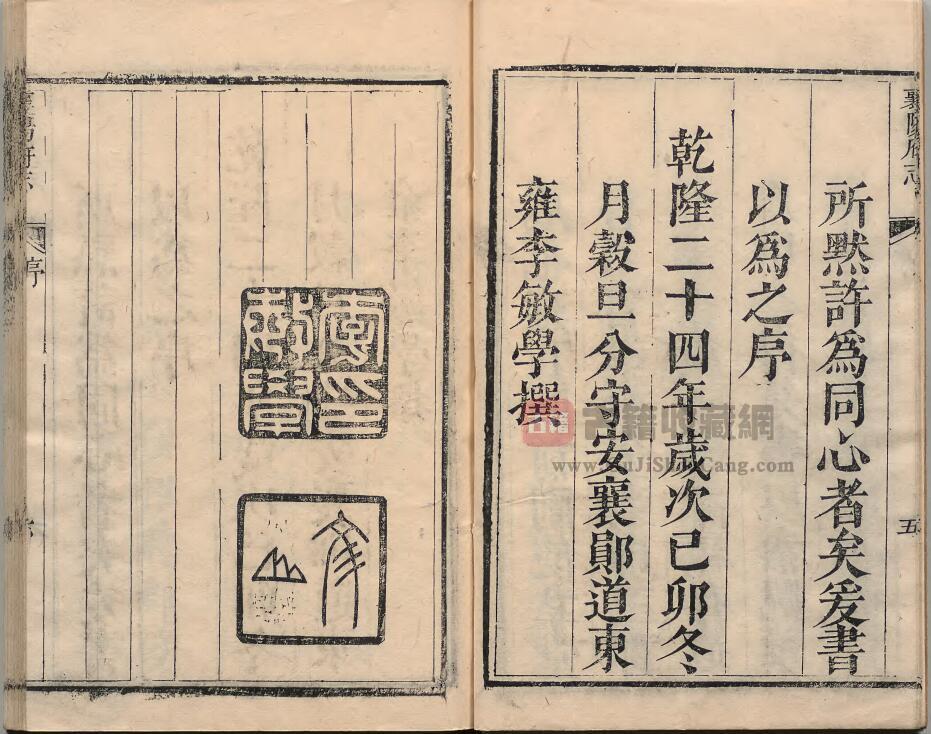 襄陽府志
五
所黙許為同心者矣爰書
以為之序
乾隆二十四年歲次己卯冬
月穀旦分守安襄鄖道東
雍李敏學撰
古籍收藏網
www.GuJiShouCang.com
敏學
山
襄陽府志
序